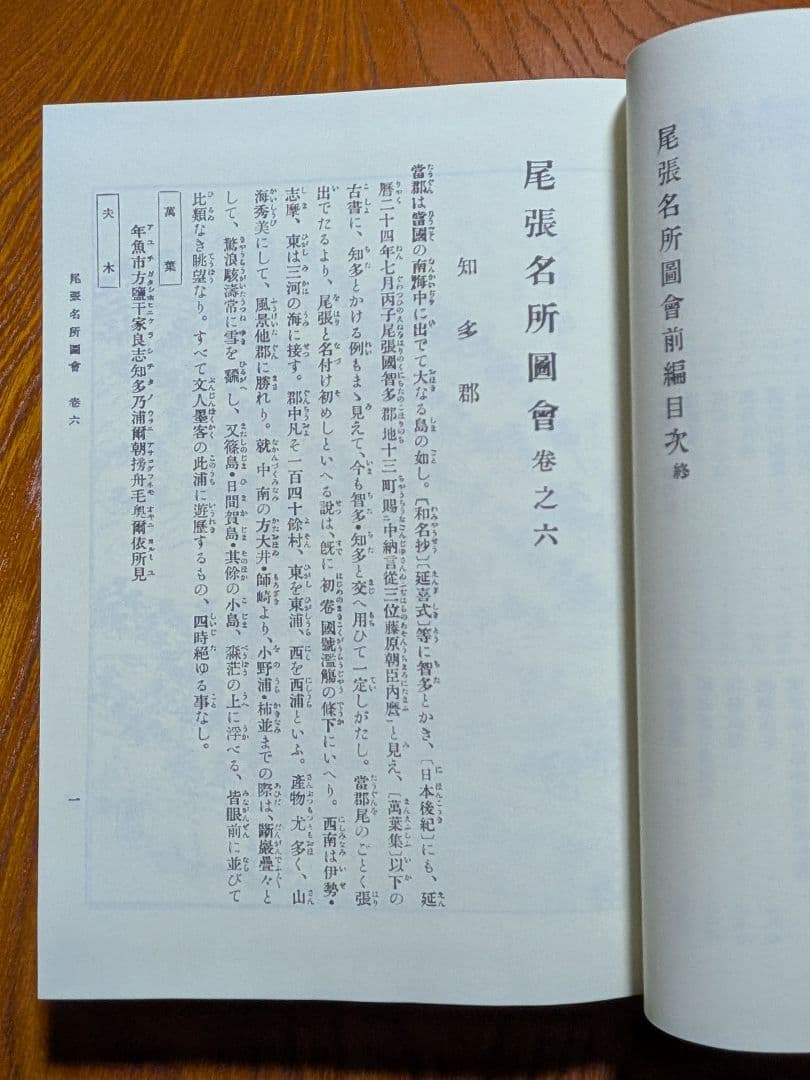 尾張名所圖會前編目次 終
尾張名所圖會 卷之六
知多郡
當郡は當國の南海中に出でて大なる島の如し。〔和名抄〕〔延喜式〕等に智多とかき、〔日本後紀〕にも、延
曆二十四年七月丙子尾張國智多郡地十三町賜二中納言從三位藤原朝臣內麿一と見え、〔萬葉集〕以下の
古書に、知多とかける例もまゝ見えて、今も智多・知多と交へ用ひて一定しがたし。當郡尾のごとく張
出でたるより、尾張と名付け初めしといへる說は、旣に初卷國號濫觴の條下にいへり。西南は伊勢・
志摩、東は三河の海に接す。郡中凡そ一百四十餘村、東を東浦、西を西浦といふ。產物尤多く、山
海秀美にして、風景他郡に勝れり。就中南の方大井・師崎より、小野浦・柿並までの際は、斷巖疊々と
して、驚浪駭濤常に雪を飜し、又篠島・日間賀島・其餘の小島、淼茫の上に浮べる、皆眼前に並びて
比類なき眺望なり。すべて文人墨客の此浦に遊歷するもの、四時絕ゆる事なし。
萬葉
年魚市方鹽干家良志知多乃浦爾朝搒舟毛奧爾依所見
夫木
尾張名所圖會 卷六
一